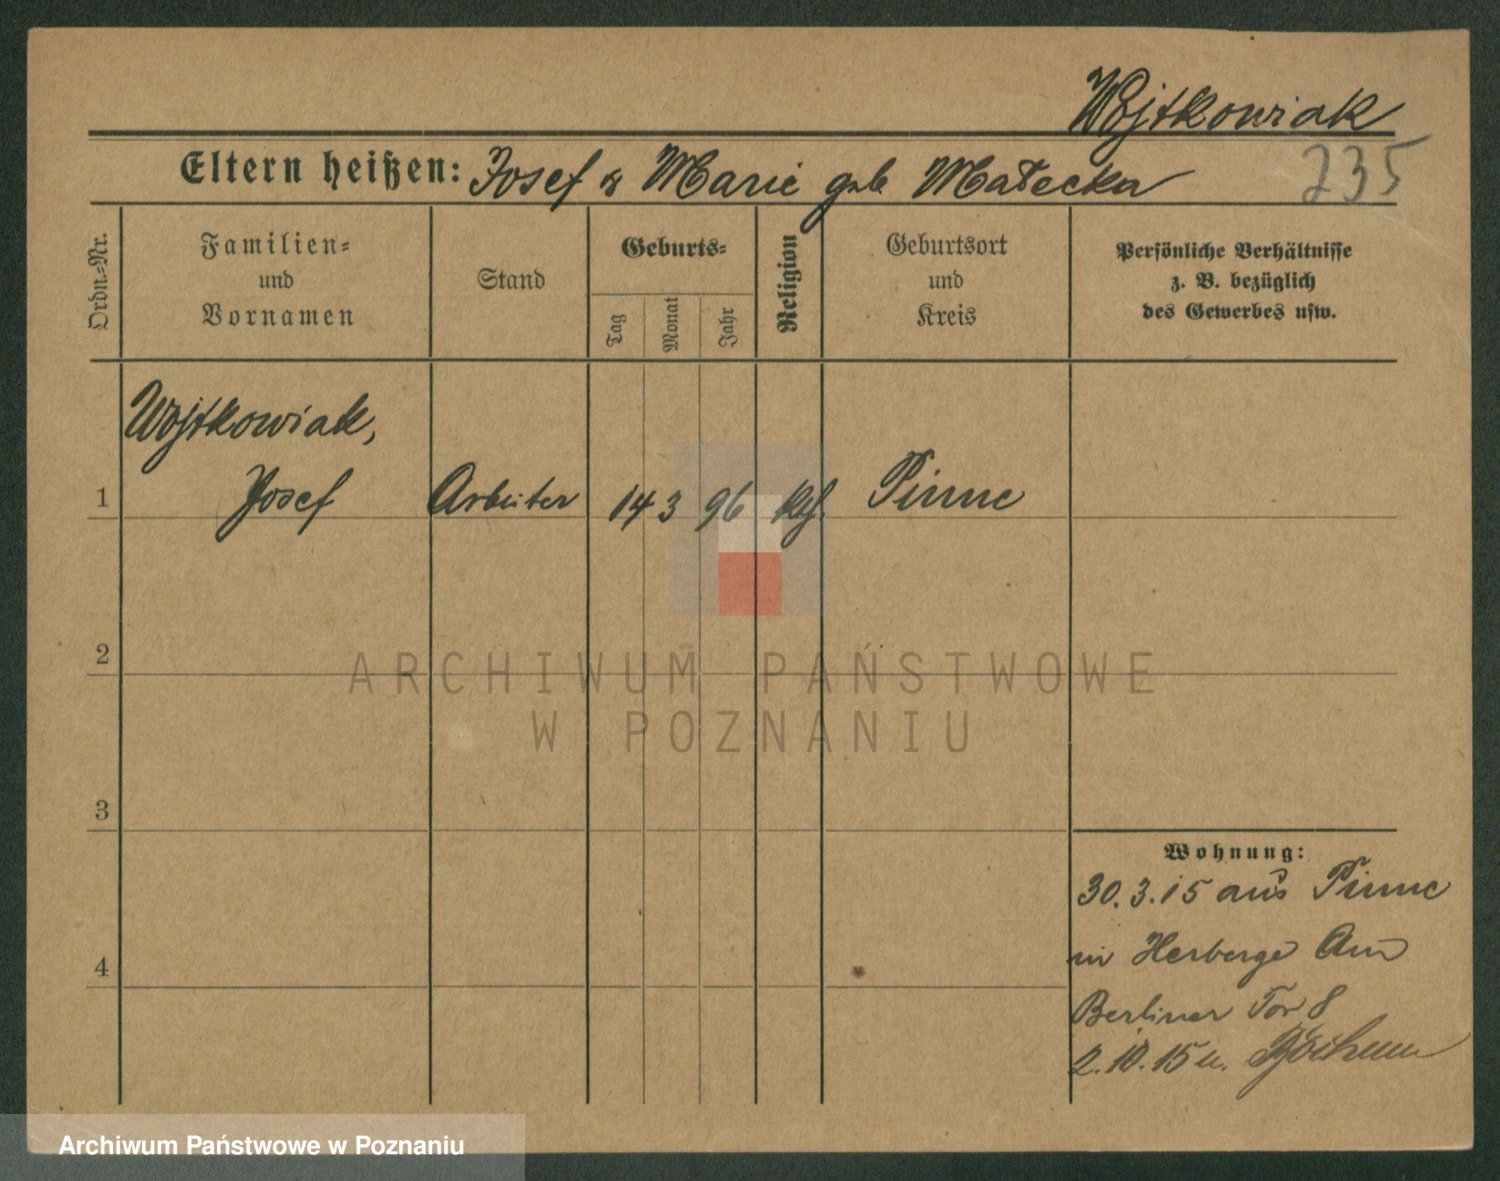 Wojtkowiak
Eltern heißen: Josef & Marie geb Małecka
235
Ordn.-Nr.
Familien-
und
Vornamen
Stand
Geburts-
Tag
Monat
Jahr
Religion
Geburtsort
und
Kreis
Persönliche Verhältnisse
z. B. bezüglich
des Gewerbes usw.
Wojtkowiak,
1 Josef Arbeiter 14 3 96 Pinne
2
ARCHIWUM PAŃSTWOWE
W POZNANIU
3
Wohnung:
30.3.15 aus Pinne
in Herberge Am
4
Berliner Tor 8
2.10.15 n. Bochum
Archiwum Państwowe w Poznaniu